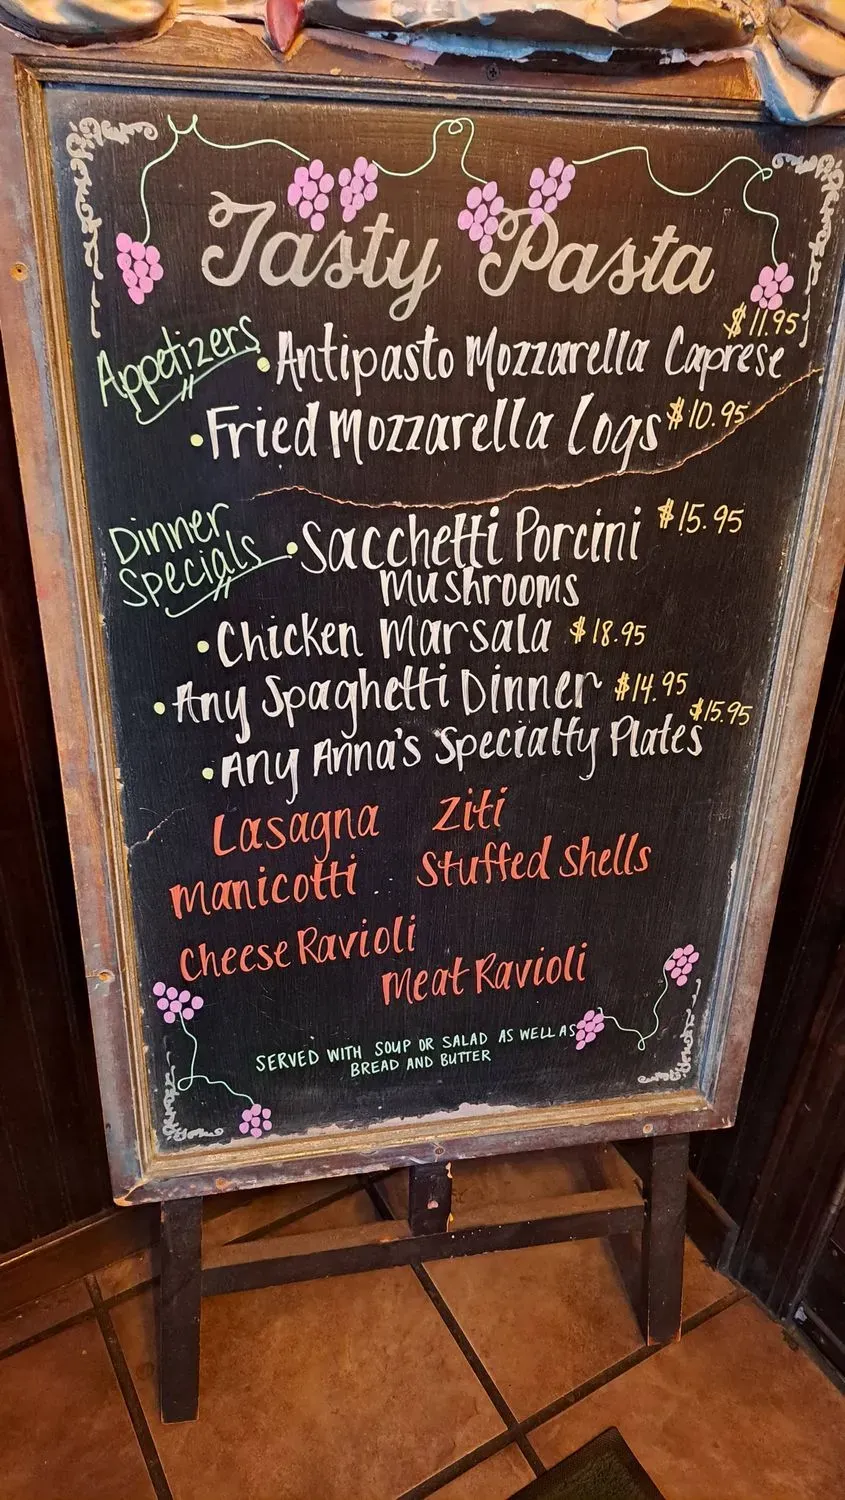 Tasty Pasta
Appetizers
$11.95
• Antipasto Mozzarella Caprese
• Fried Mozzarella Logs $10.95
Dinner
Specials
• Sacchetti Porcini $15.95
Mushrooms
• Chicken Marsala $18.95
• Any Spaghetti Dinner $14.95
• Any Anna's Specialty Plates $15.95
Lasagna Ziti
Manicotti Stuffed Shells
Cheese Ravioli
Meat Ravioli
SERVED WITH SOUP OR SALAD AS WELL AS
BREAD AND BUTTER